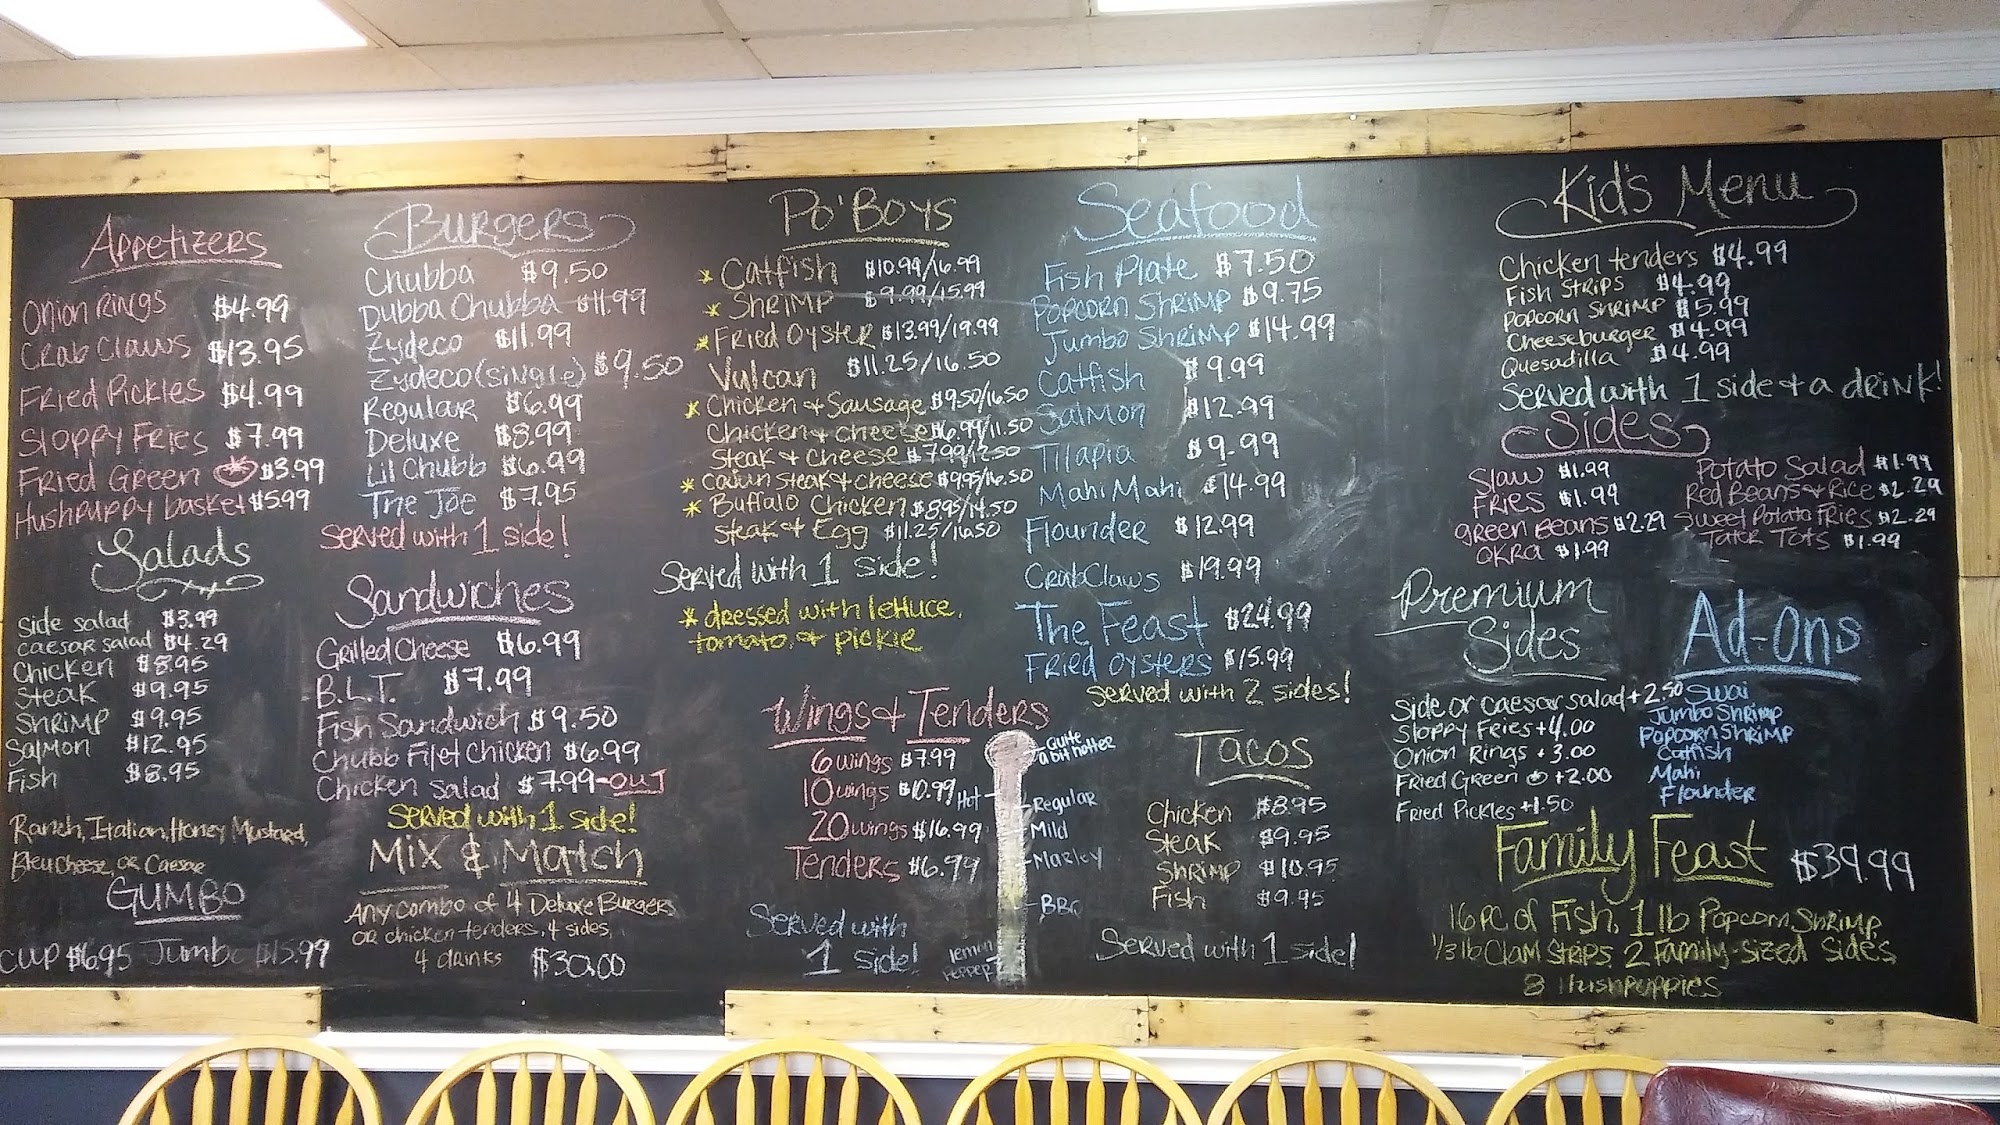 Appetizers
Onion Rings $4.99
Crab Claws $13.95
Fried Pickles $4.99
Sloppy Fries $7.99
Fried Green $3.99
Hushpuppy basket $5.99
Salads
Side salad $3.99
caesar salad $4.29
Chicken $8.95
Steak $9.95
Shrimp $9.95
Salmon $12.95
Fish $8.95
Ranch, Italian, Honey Mustard,
Bleu Cheese, or Caesar
Gumbo
Cup $6.95 Jumbo $15.99
Burgers
Chubba $9.50
Dubba Chubba $11.99
Zydeco $11.99
Zydeco (single) $9.50
Regular $6.99
Deluxe $8.99
Lil Chubb $6.99
The Joe $7.95
Served with 1 side!
Sandwiches
Grilled Cheese $6.99
B.L.T. $7.99
Fish Sandwich $9.50
Chubb Filet Chicken $6.99
Chicken Salad $7.99-OUT
Served with 1 side!
Mix & Match
Any combo of 4 Deluxe Burgers
or chicken tenders, 4 sides,
4 drinks $30.00
Po'Boys
* Catfish $10.99/16.99
* Shrimp $9.99/15.99
* Fried Oyster $13.99/19.99
Vulcan $11.25/16.50
* Chicken & Sausage $9.50/16.50
Chicken & cheese $6.99/11.50
Steak & Cheese $7.99/12.50
* Cajun Steak & cheese $9.95/16.50
* Buffalo Chicken $8.95/14.50
Steak & Egg $11.25/16.50
Served with 1 side!
* dressed with lettuce,
tomato, & pickle
Wings & Tenders
6 wings $7.99
10 wings $10.99
20 wings $16.99
Tenders $6.99
Served with
1 side!
Quite
a bit hotter
Hot
Regular
Mild
Marley
BBQ
lemon
pepper
Seafood
Fish Plate $7.50
Popcorn Shrimp $9.75
Jumbo Shrimp $14.99
Catfish $9.99
Salmon $12.99
Tilapia $9.99
Mahi Mahi $14.99
Flounder $12.99
Crab Claws $19.99
The Feast $24.99
Fried Oysters $15.99
Served with 2 sides!
Tacos
Chicken $8.95
Steak $9.95
Shrimp $10.95
Fish $9.95
Served with 1 side!
Kid's Menu
Chicken tenders $4.99
Fish Strips $4.99
Popcorn Shrimp $5.99
Cheeseburger $4.99
Quesadilla $4.99
Served with 1 side & a drink!
Sides
Slaw $1.99
Fries $1.99
Green Beans $2.29
Okra $1.99
Potato Salad $1.99
Red Beans & Rice $2.29
Sweet Potato Fries $2.29
Tater Tots $1.99
Premium
Sides
Side or caesar salad +2.50
Sloppy Fries +4.00
Onion Rings +3.00
Fried Green +2.00
Fried Pickles +1.50
Ad-Ons
Swai
Jumbo Shrimp
Popcorn Shrimp
Catfish
Mahi
Flounder
Family Feast $39.99
16 pc of Fish, 1 lb Popcorn Shrimp,
1/3 lb Clam Strips, 2 Family-sized Sides,
8 Hushpuppies